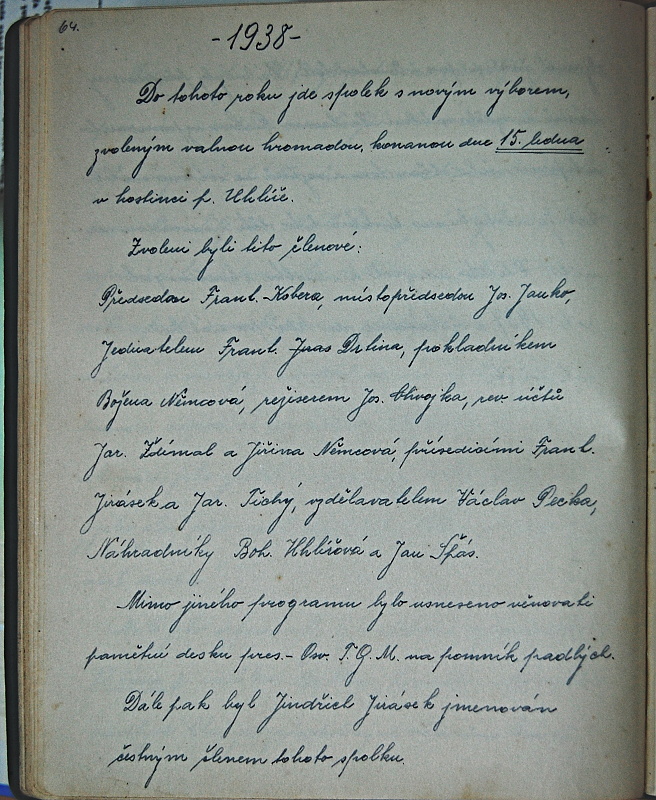 64.
-1938-
Do tohoto roku jde spolek s novým výborem,
zvoleným valnou hromadou, konanou dne 15. ledna
v hostinci p. Uhlíře.
Zvoleni byli tito členové:
Předsedou Frant. Kobera, místopředsedou Jos. Janko,
Jednatelem Frant. Drtina, pokladníkem
Božena Němcová, režiserem Jos. Chvojka, rev. účtů
Jar. Ždímal a Jiřina Němcová, přísedícími Frant.
Jirásek a Jar. Tichý, vzdělavatelem Václav Pecka,
Náhradníky Boh. Uhlířová a Jan Špás.
Mimo jiného programu bylo usneseno věnovati
pamětní desku pres.- Osv. T. G. M. na pomník padlých.
Dále pak byl Jindřich Jirásek jmenován
čestným členem tohoto spolku.